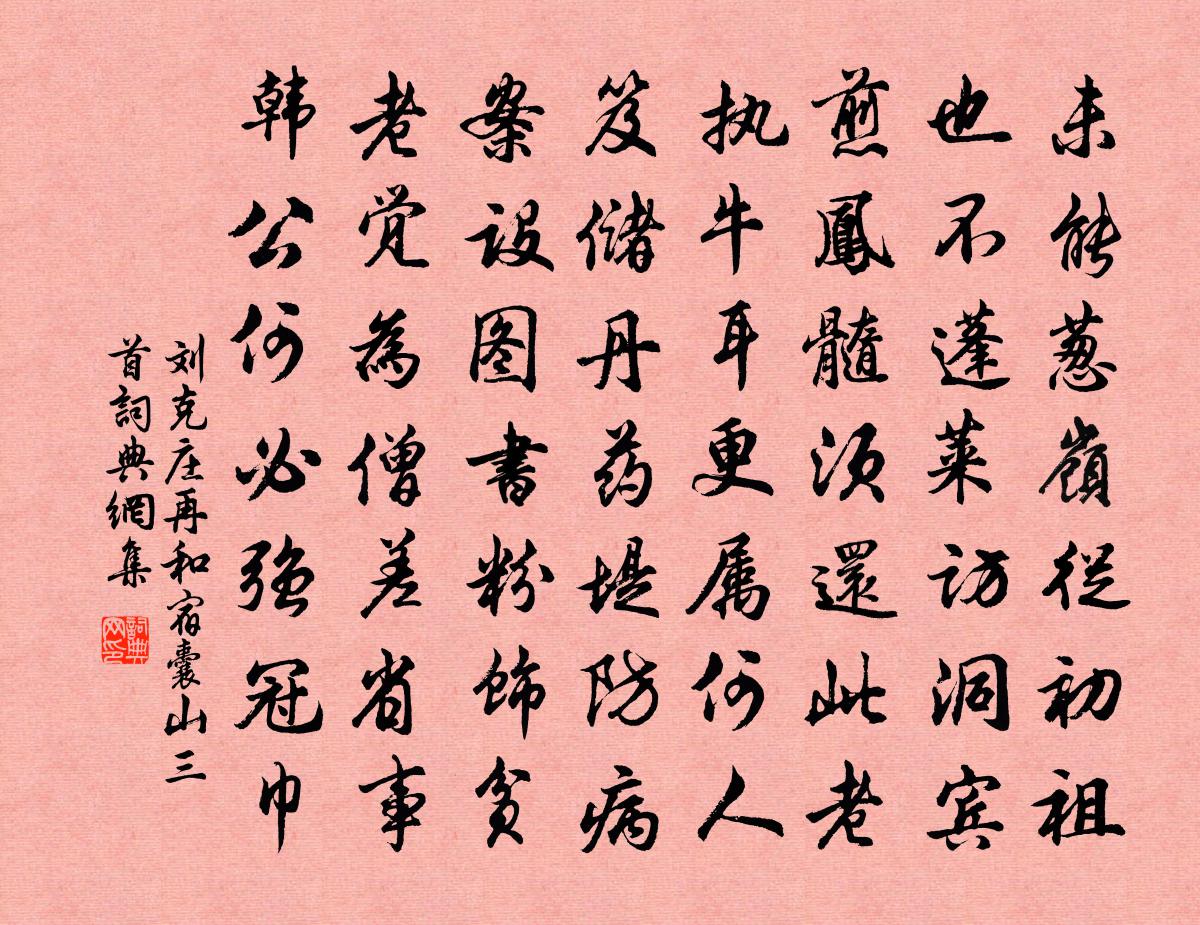 未能葱嶺從初祖
也不蓬萊訪洞賓
煎鳳髓須還此老
执牛耳更属何人
笈儲丹药堤防病
案設图書粉飾貧
老觉為僧差省事
韩公何必强冠巾
刘克庄再和宿囊山三
首詞典網集
詞典網印